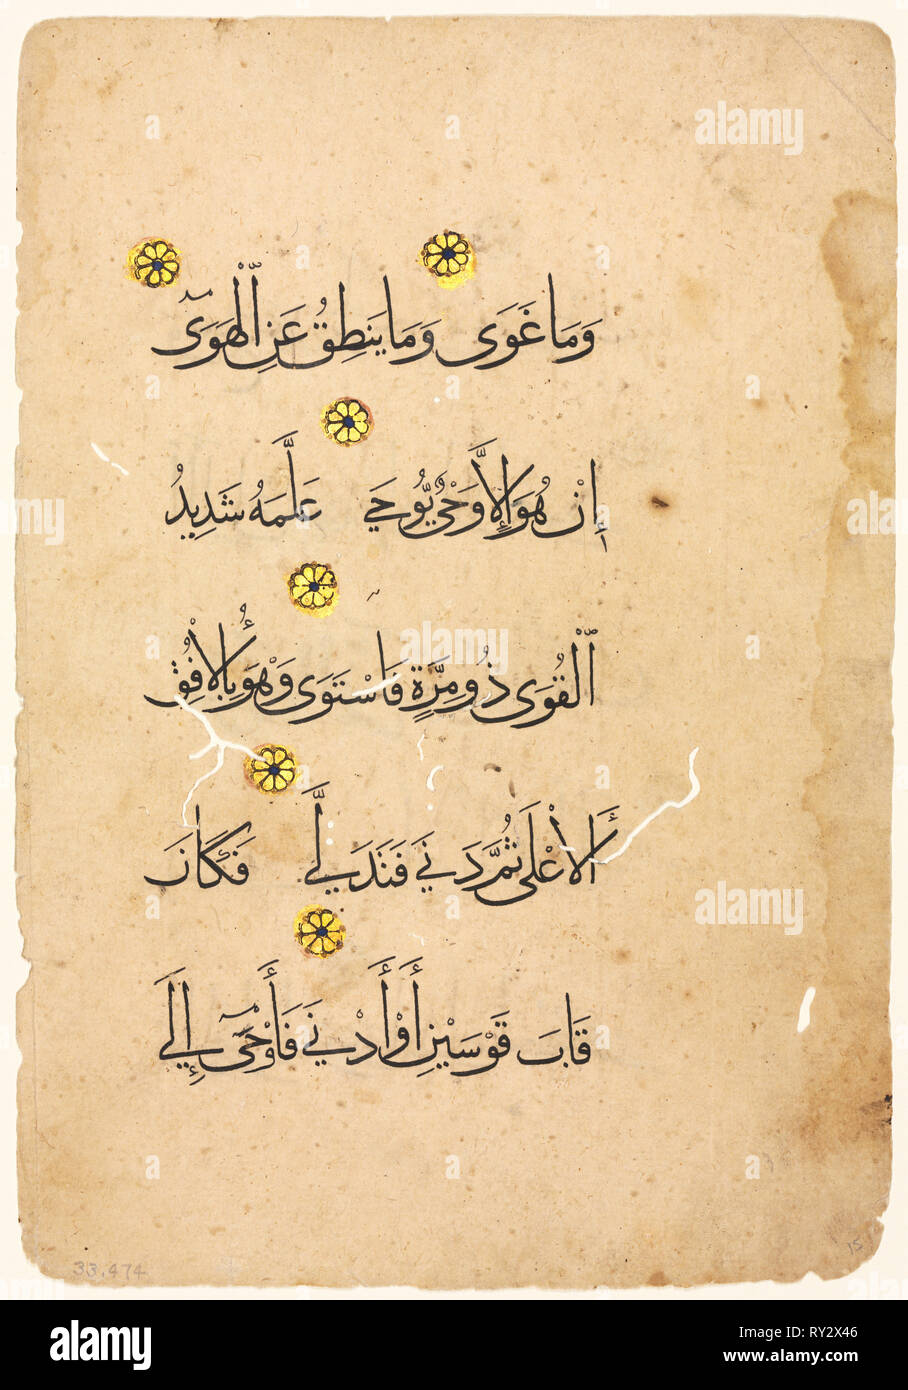 وَمَا غَوَى وَمَا يَنطِقُ عَنِ ٱلْهَوَىٓ
إِنْ هُوَ إِلَّا وَحْيٌ يُّوحَى عَلَّمَهُ شَدِيدُ
ٱلْقُوَى ذُو مِرَّةٍ فَاسْتَوَى وَهْوَ بِالْأُفُقِ
ٱلْأَعْلَى ثُمَّ دَنَى فَتَدَلَّى فَكَانَ
قَابَ قَوْسَيْنِ أَوْ أَدْنَى فَأَوْحَىٓ إِلَى
33.474
15
alamy
alamy
alamy
alamy
alamy
a
a
a
a
a
a
a
a
alamy
Image ID: RY2X46
www.alamy.com